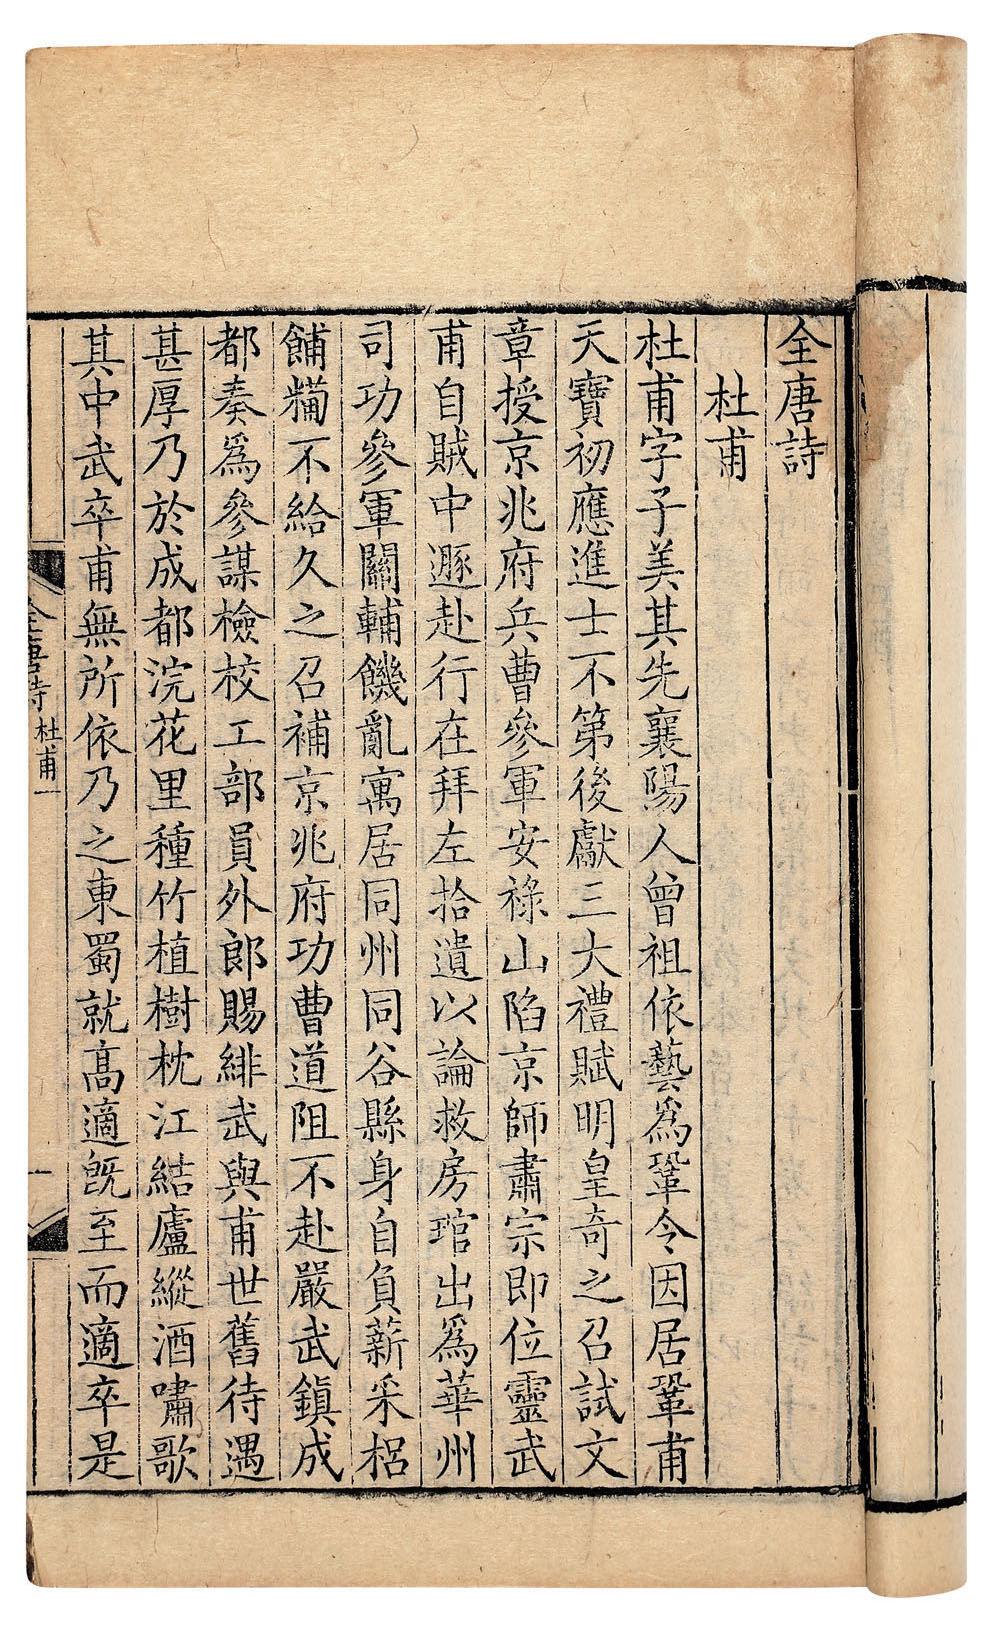 全唐詩
杜甫
杜甫字子美其先襄陽人曾祖依藝爲鞏令因居鞏甫
天寶初應進士不第後獻三大禮賦明皇奇之召試文
章授京兆府兵曹參軍安祿山陷京師肅宗即位靈武
甫自賊中遯赴行在拜左拾遺以論救房琯出爲華州
司功參軍關輔饑亂寓居同州同谷縣身自負薪采梠
餔糒不給久之召補京兆府功曹道阻不赴嚴武鎮成
都奏爲參謀檢校工部員外郎賜緋武與甫世舊待遇
甚厚乃於成都浣花里種竹植樹枕江結廬縱酒嘯歌
其中武卒甫無所依乃之東蜀就高適旣至而適卒是
全唐詩 杜甫一
一